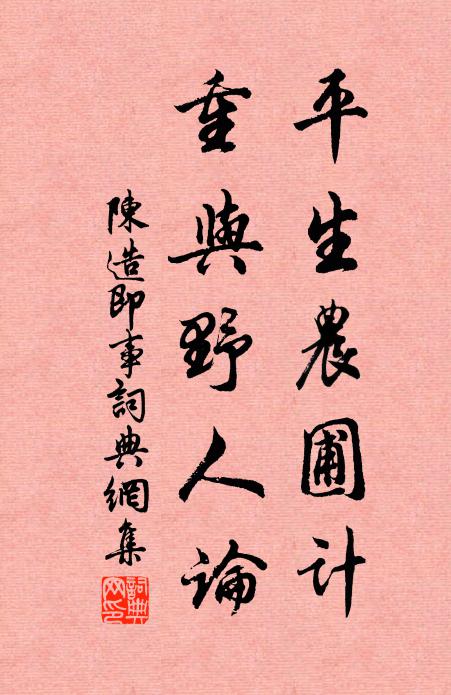 平生農圃計
重與野人論
陳造即事詞典網集
詞典网印